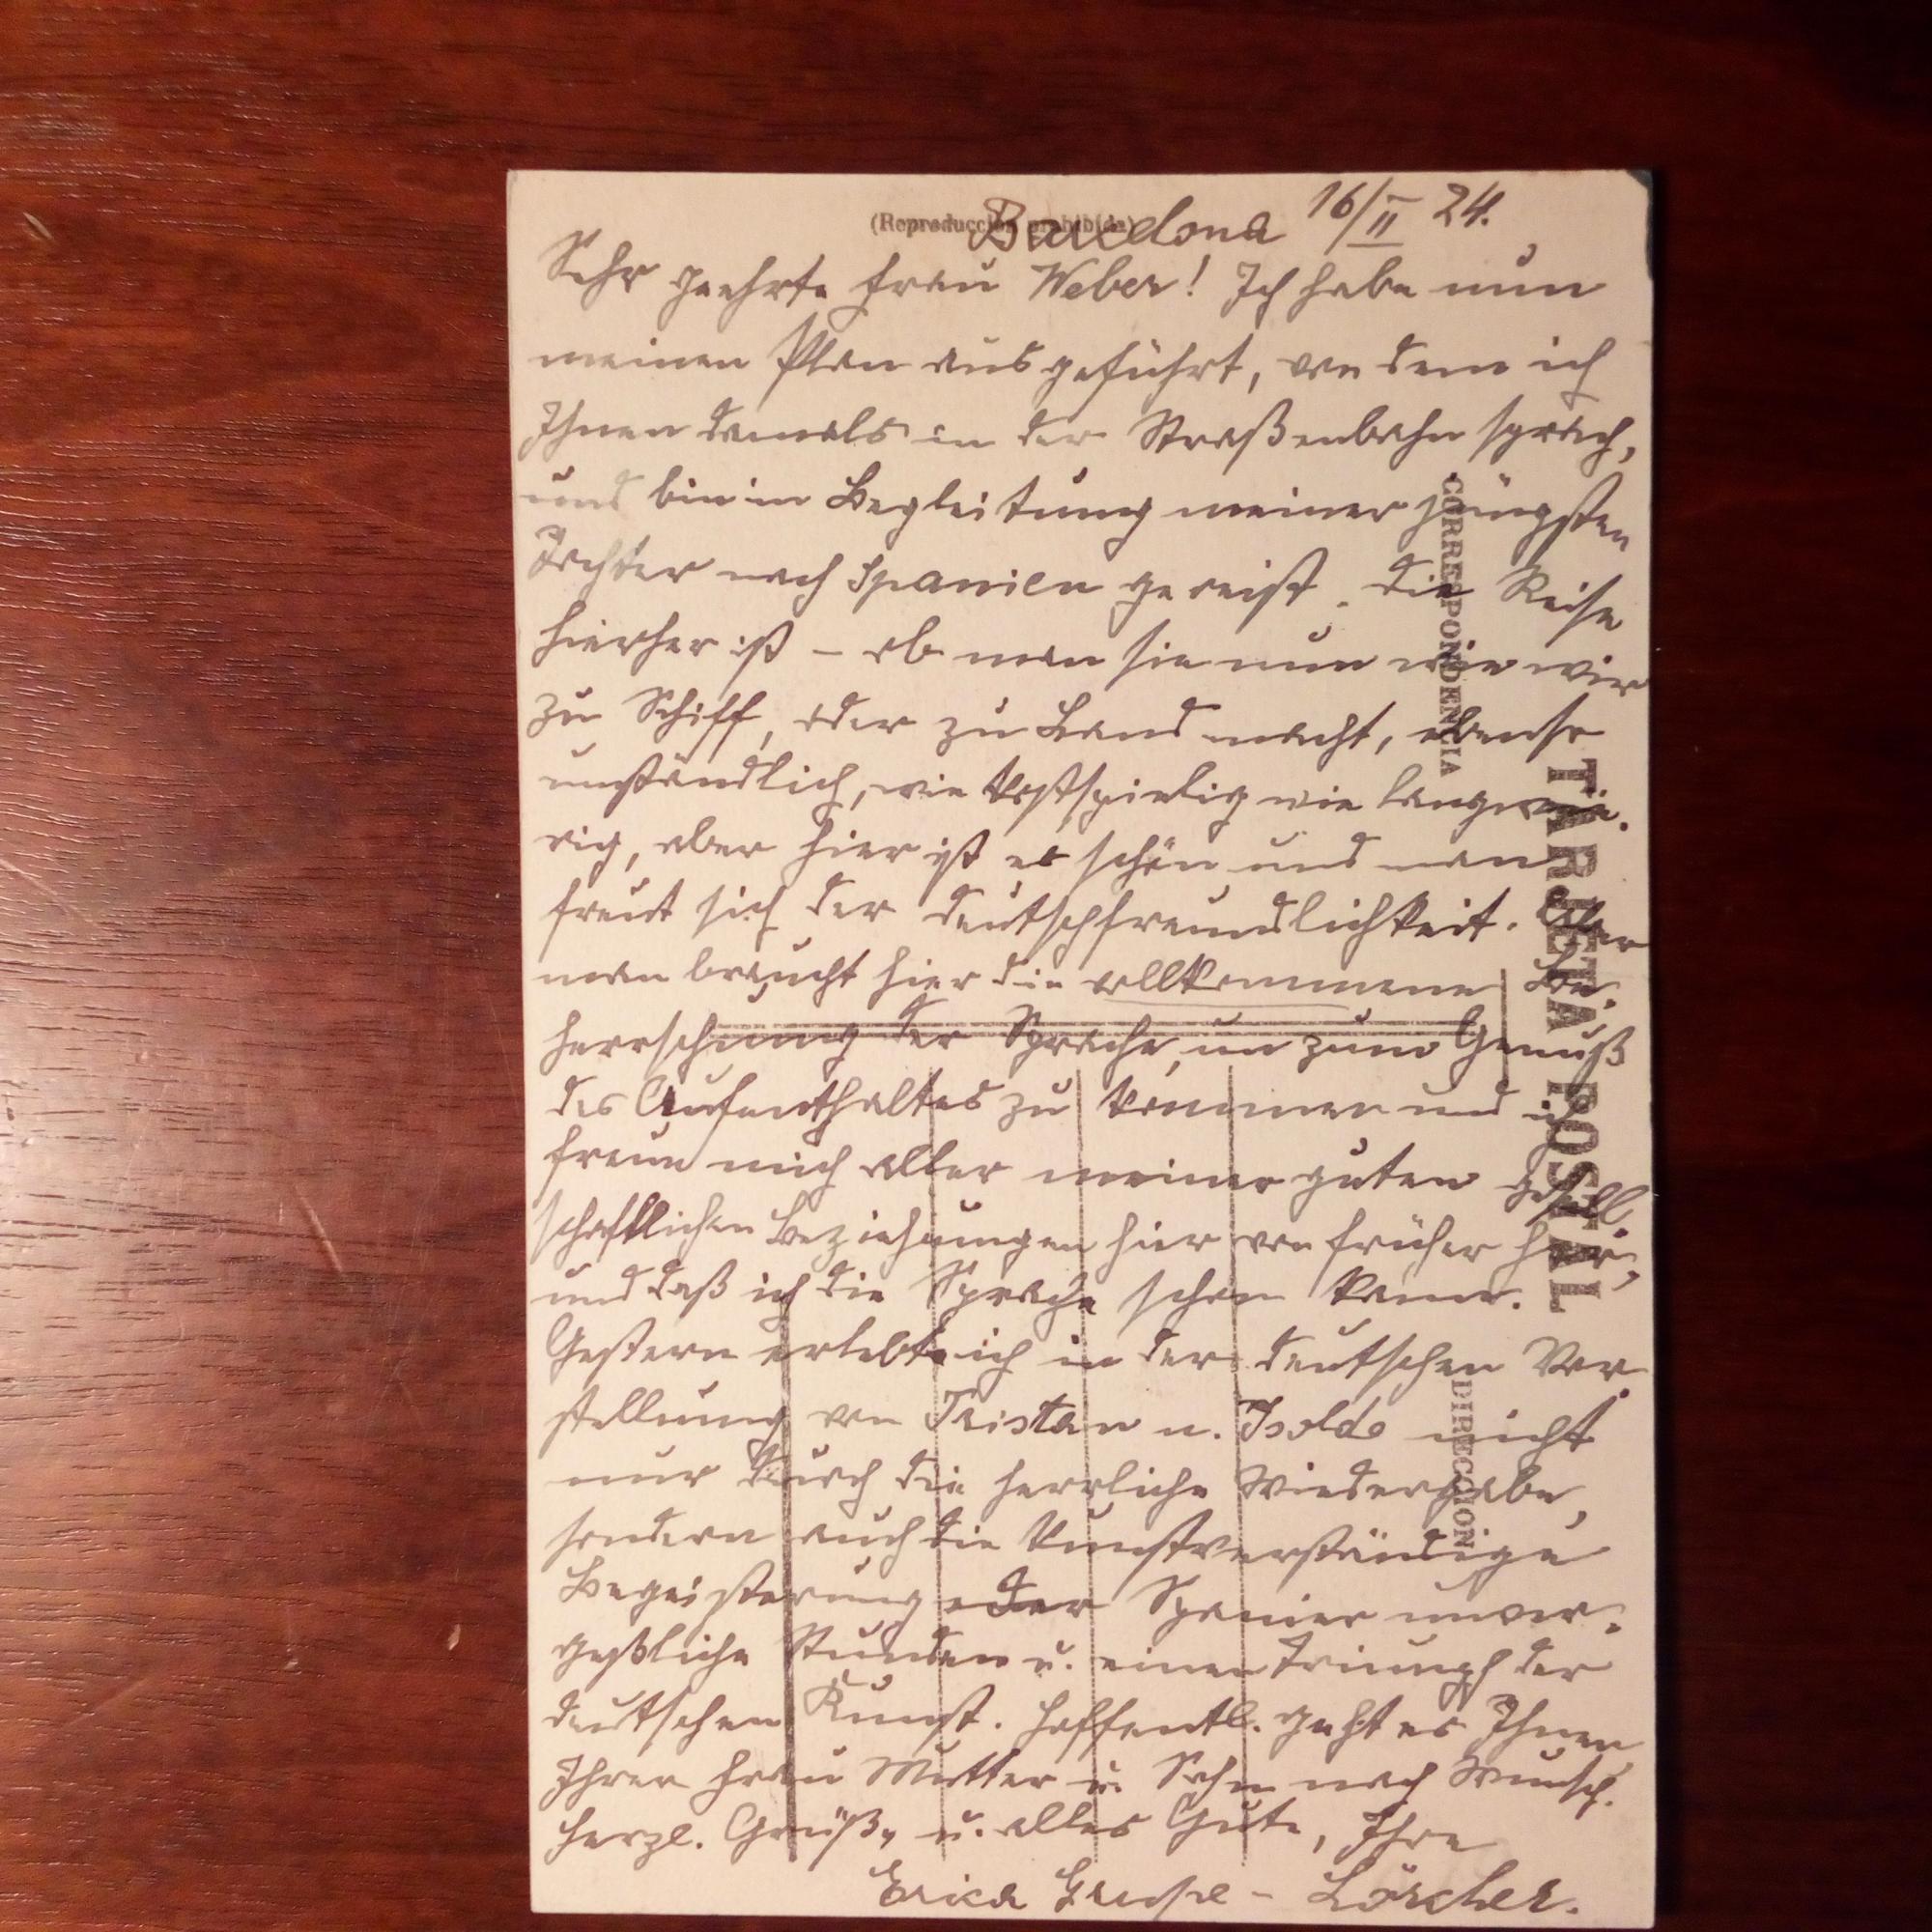 (Reproducción prohibida)
Barcelona 16/II 24.
Sehr geehrte Frau Weber! Ich habe nun
meinen Plan ausgeführt, von dem ich
Ihnen damals in der Straßenbahn sprach,
und bin in Begleitung meiner jüngsten
Tochter nach Spanien gereist. Die Reise
hierher ist – ob man sie nun wie wir
zu Schiff, oder zu Land macht, ebenso
umständlich, wie kostspielig wie langwie-
rig, aber hier ist es schön und man
freut sich der Deutschfreundlichkeit. Aber
man braucht hier die vollkommene Be-
herrschung der Sprache, um zum Genuß
des Aufenthaltes zu kommen und ich
freue mich aller meiner guten gesell-
schaftlichen Beziehungen hier von früher her,
und daß ich die Sprache schon kann.
Gestern erlebte ich in der deutschen Vor-
stellung von Tristan u. Isolde nicht
nur durch die herrliche Wiedergabe,
sondern auch die kunstverständige
Begeisterung der Spanier unver-
geßliche Stunden u. einen Triumph der
deutschen Kunst. Hoffentl. geht es Ihnen,
Ihrer Frau Mutter u. Sohn nach Wunsch.
Herzl. Grüße u. alles Gute, Ihre
Erica Grupe-Lörcher.
CORRESPONDENCIA
TARJETA POSTAL
DIRECCIÓN